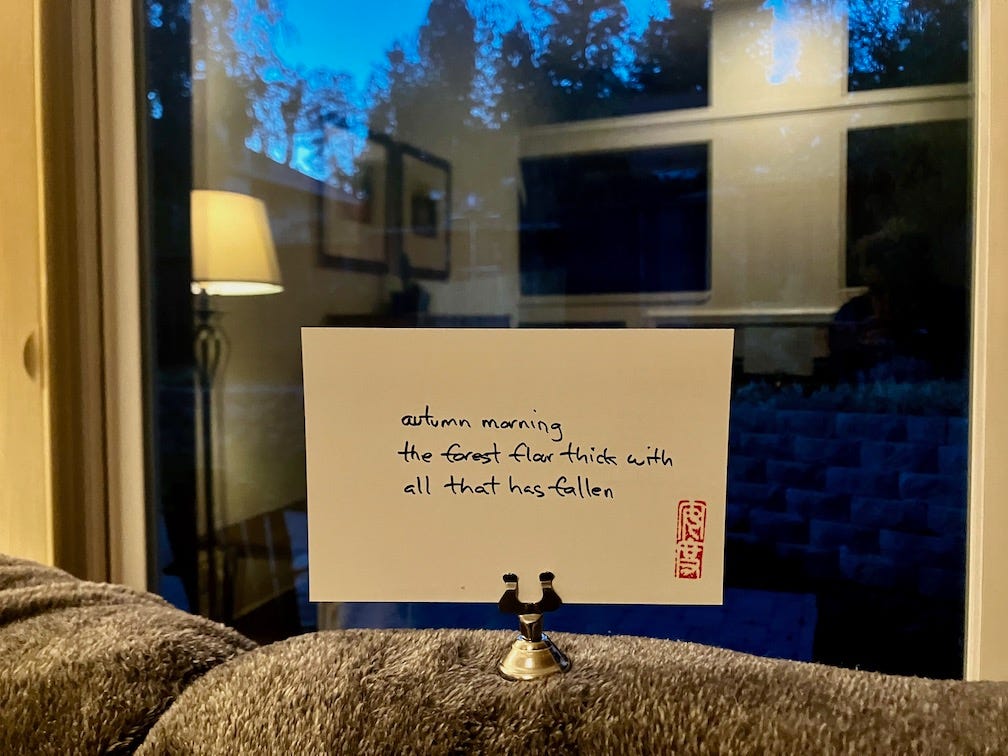 autumn morning
the forest floor thick with
all that has fallen